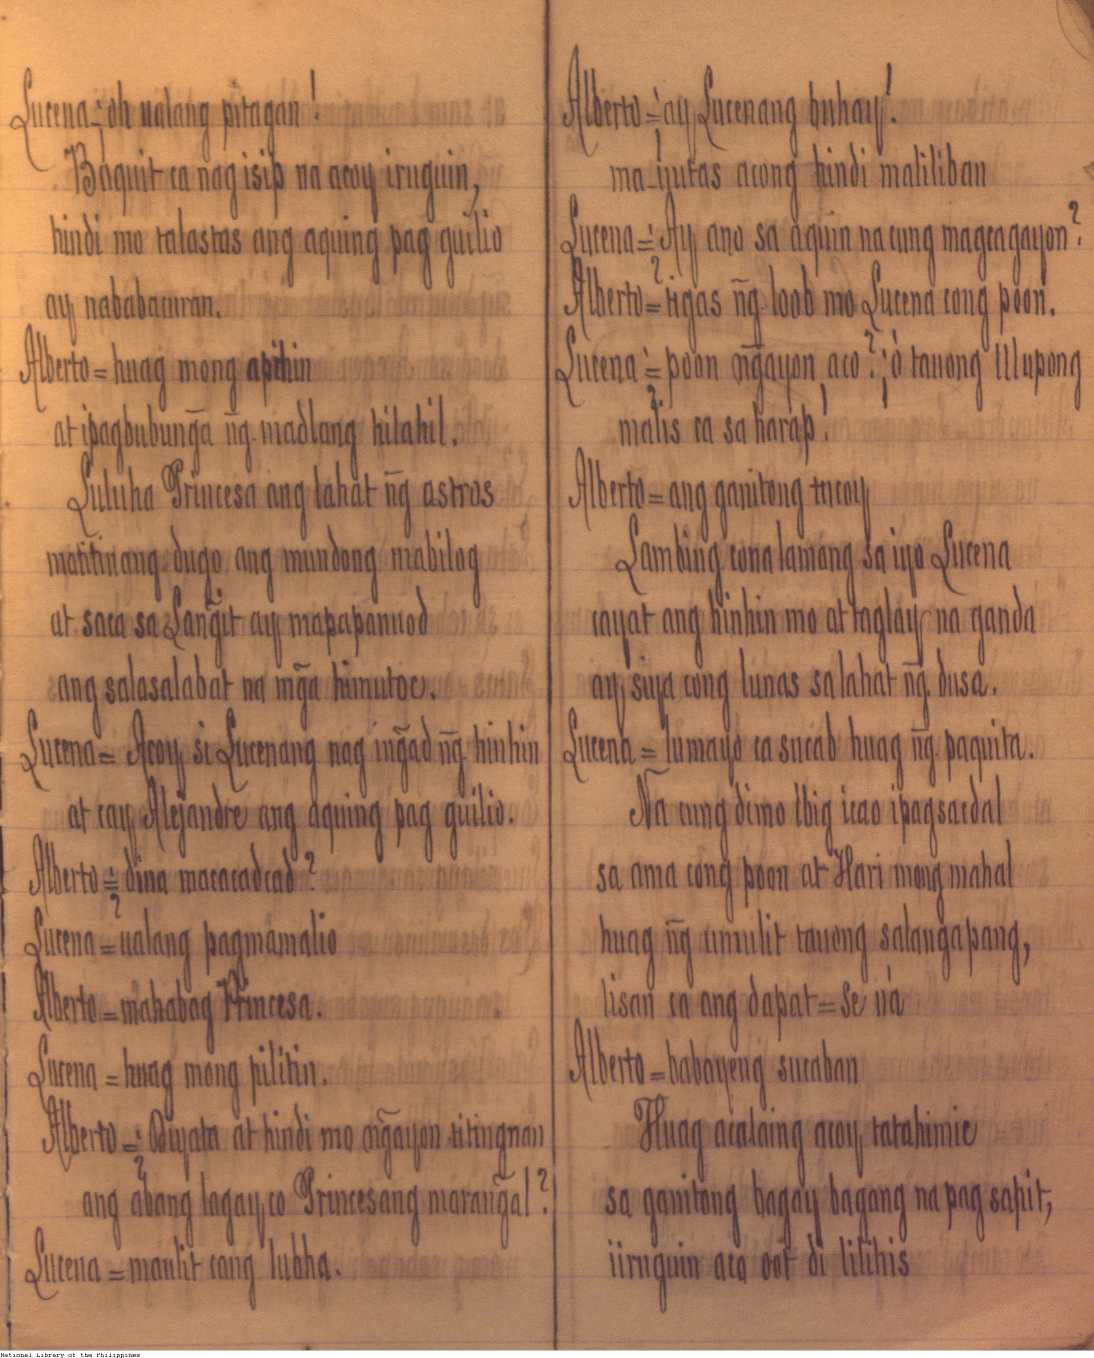 Lucena=¡oh ualang pitagan!
Baquit ca nag isip na acoy iruguin,
hindi mo talastas ang aquing pag guilio
ay nababaunran.
Alberto=huag mong apihin
at ipagbubunga ñg madlang hilahil.
Luluha Princesa ang lahat ñg astros
matitinang dugo ang mundong mabilog
at saca sa Lang̃it ay mapapanuod
ang salasalabat na mg̃a himutoc.
Lucena= Acoy si Lucenang nag ing̃ad ñg hinhin
at cay Alejandre ang aquing pag guilio.
Alberto=¿dina macacadcad?
Lucena=ualang pagmamalio
Alberto=mahabag Princesa.
Lucena=huag mong pilitin.
Alberto=¿Diyata at hindi mo ñgayon titingnan
ang abang lagay co Princesang marang̃al?
Lucena=maulit cang lubha.
Alberto=¡ay Lucenang buhay!
ma-yutas acong hindi maliliban
Lucena=¿Ay ano sa aquin na cung magcagayon?
Alberto=tigas ñg loob mo Lucena cong poon.
Lucena=¿poon ñgayon aco?; ó tauong Ulupong
malis ca sa harap!
Alberto=ang ganitong tucoy
Lambing cona lamang sa iyo Lucena
cayat ang hinhin mo at taglay na ganda
ay siya cong lunas sa lahat ñg dusa.
Lucena=lumayo ca sucab huag ñg paquita.
Na cung dimo ibig icao ipagsacdal
sa ama cong poon at Hari mong mahal
huag ñg umulit tauong salangapang,
lisan ca ang dapat=Se ná
Alberto=babayeng sucaban
Huag acalaing acoy tatahimic
sa ganitong bagay bagang na pag sapit,
iiruguin aca oot di lilihis
National Library of the Philippines